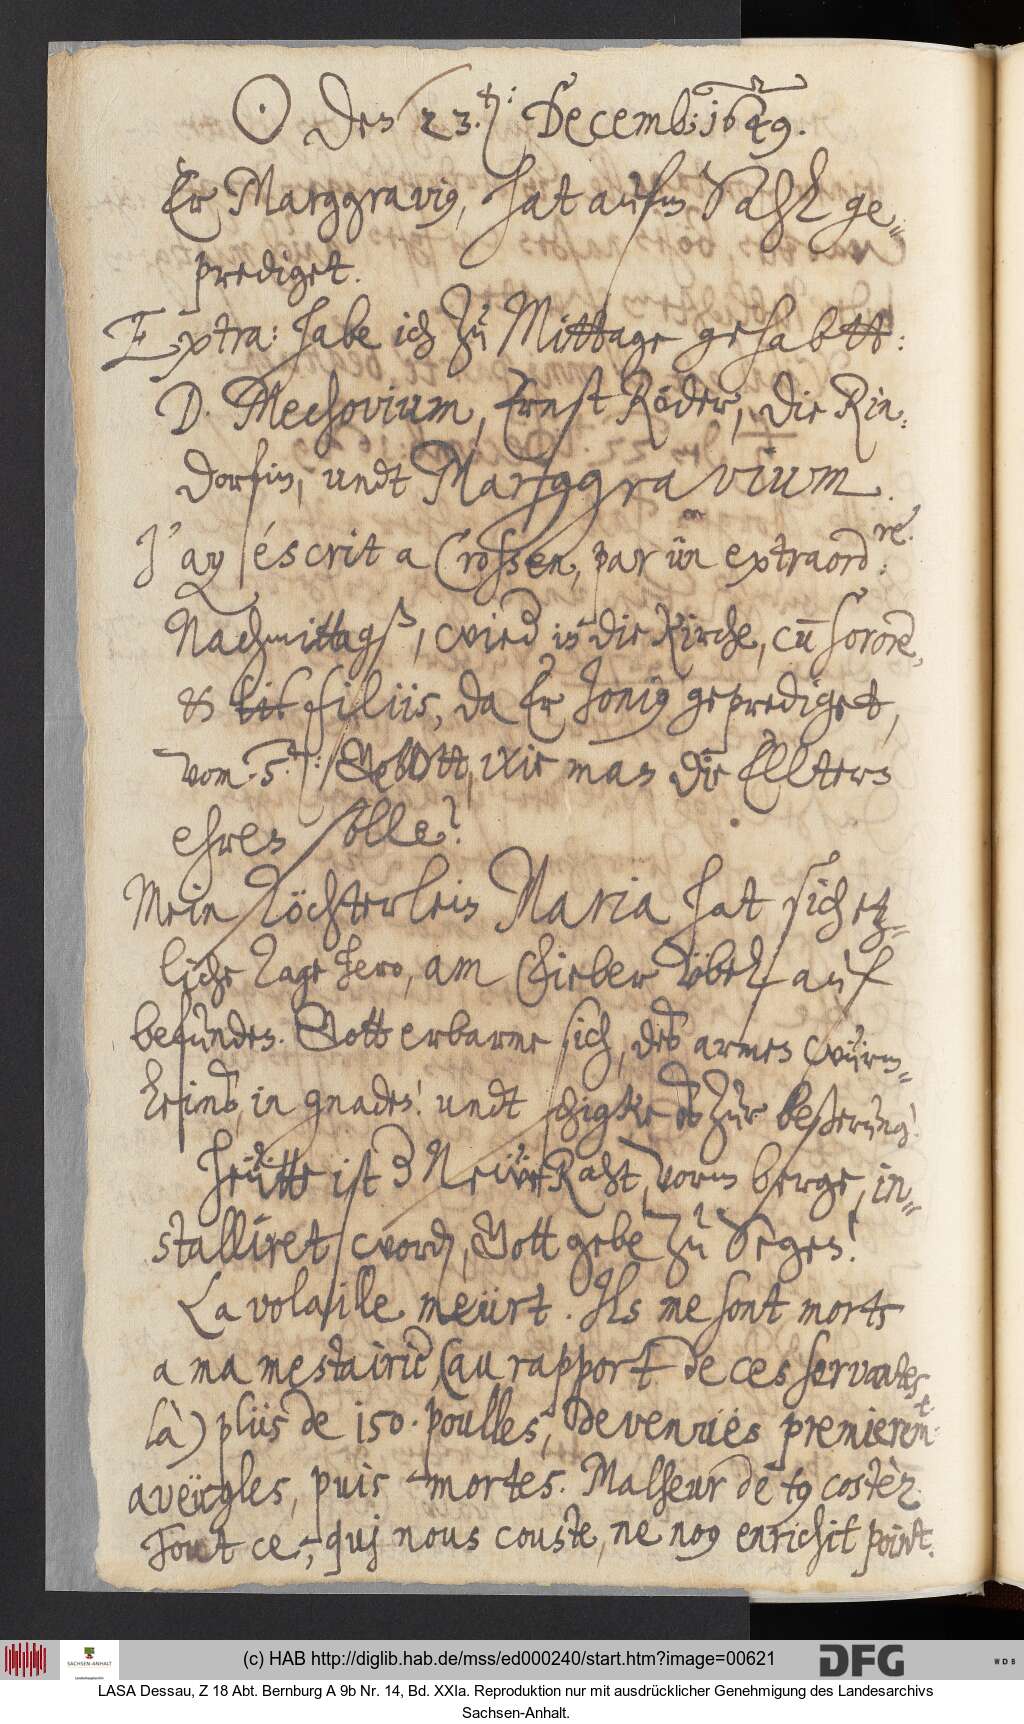 ☉ Den 23.t: Decemb: 1649.
Er Marggravius, hat aufm Sahl ge=
prediget.
Extra: habe ich zu Mittage gehabtt:
D. Mechovium, Ernst Röder, die Rin=
dorfin, undt Marggravium.
J'ay éscrit a Crossen, par ün extraord:re.
Nachmittagß, wied in die Kirche, cũ sorore,
& filiis, da Er Jonius geprediget,
vom 5.t: Gebott, wie man die Elltern
ehren solle?
Mein Töchterlein Maria hat sich etz=
liche Tage hero, am Fieber übel auf
befunden. Gott erbarme sich, deß armen würm=
leinß, in gnaden! undt schigke es zur beßerung!
Heütte ist d Neüe Raht, vorm berge, in=
stalliret word, Gott gebe zu Segen!
La volaille meurt. Ils me sont morts
a ma mestairie (au rapport de ces servantes
là) plüs de 150. poulles, devenües premierem:t
aveügles, puis mortes. Malheur de tous costèz.
Tout ce, quj nous couste, ne nous enrichit point.
(c) HAB http://diglib.hab.de/mss/ed000240/start.htm?image=00621
SACHSEN-ANHALT
DFG
WDB
LASA Dessau, Z 18 Abt. Bernburg A 9b Nr. 14, Bd. XXIa. Reproduktion nur mit ausdrücklicher Genehmigung des Landesarchivs
Sachsen-Anhalt.